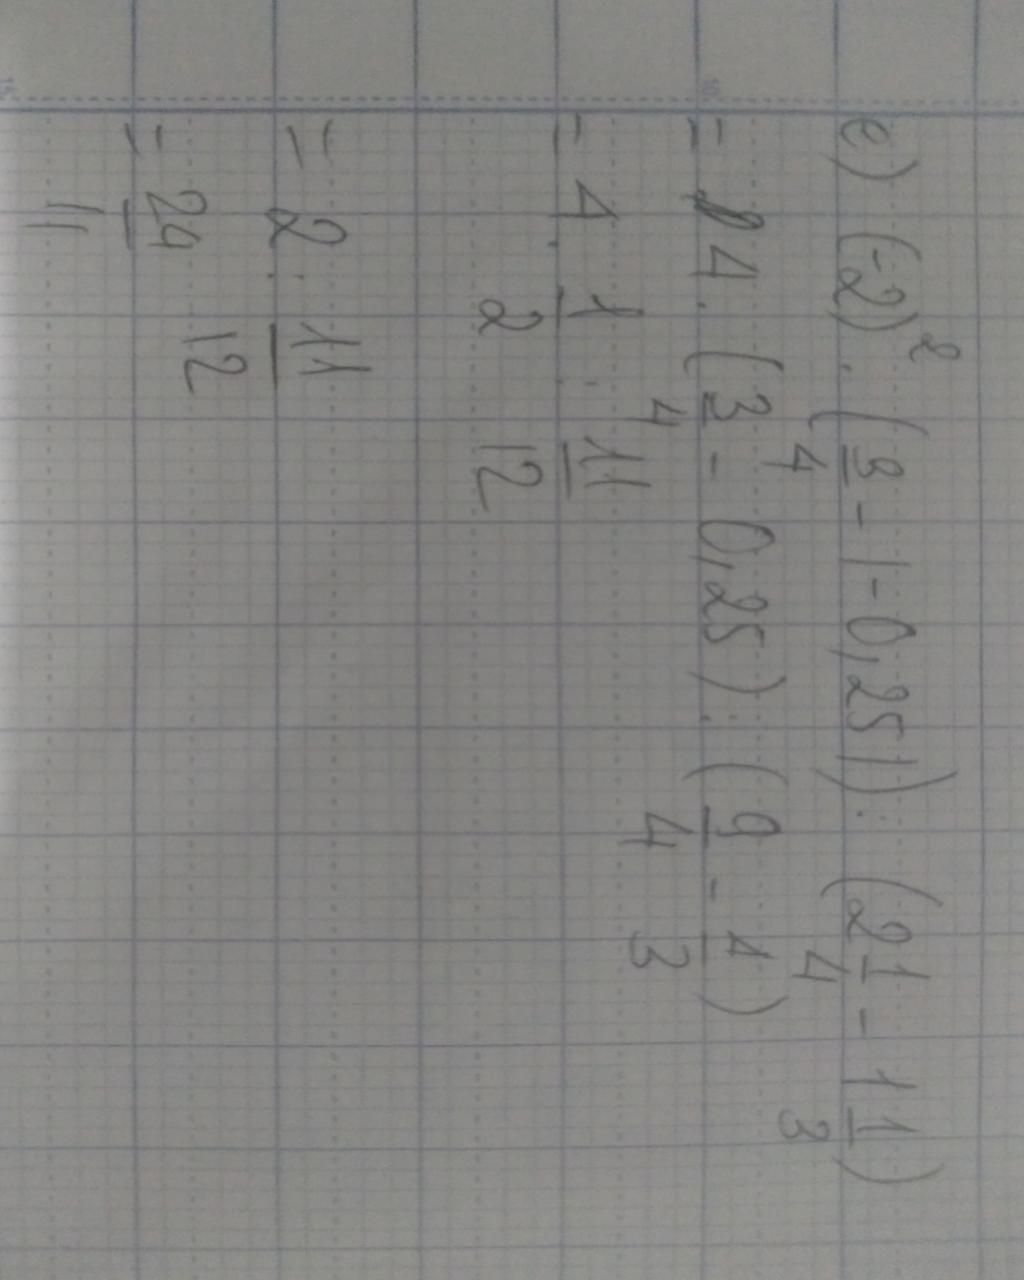 e) (-2)² · (3/4 - |-0,25|) : (2 1/4 - 1 1/3)
= 4 · (3/4 - 0,25) : (9/4 - 4/3)
= 4 · 1/2 : 11/12
= 2 : 11/12
= 24/11